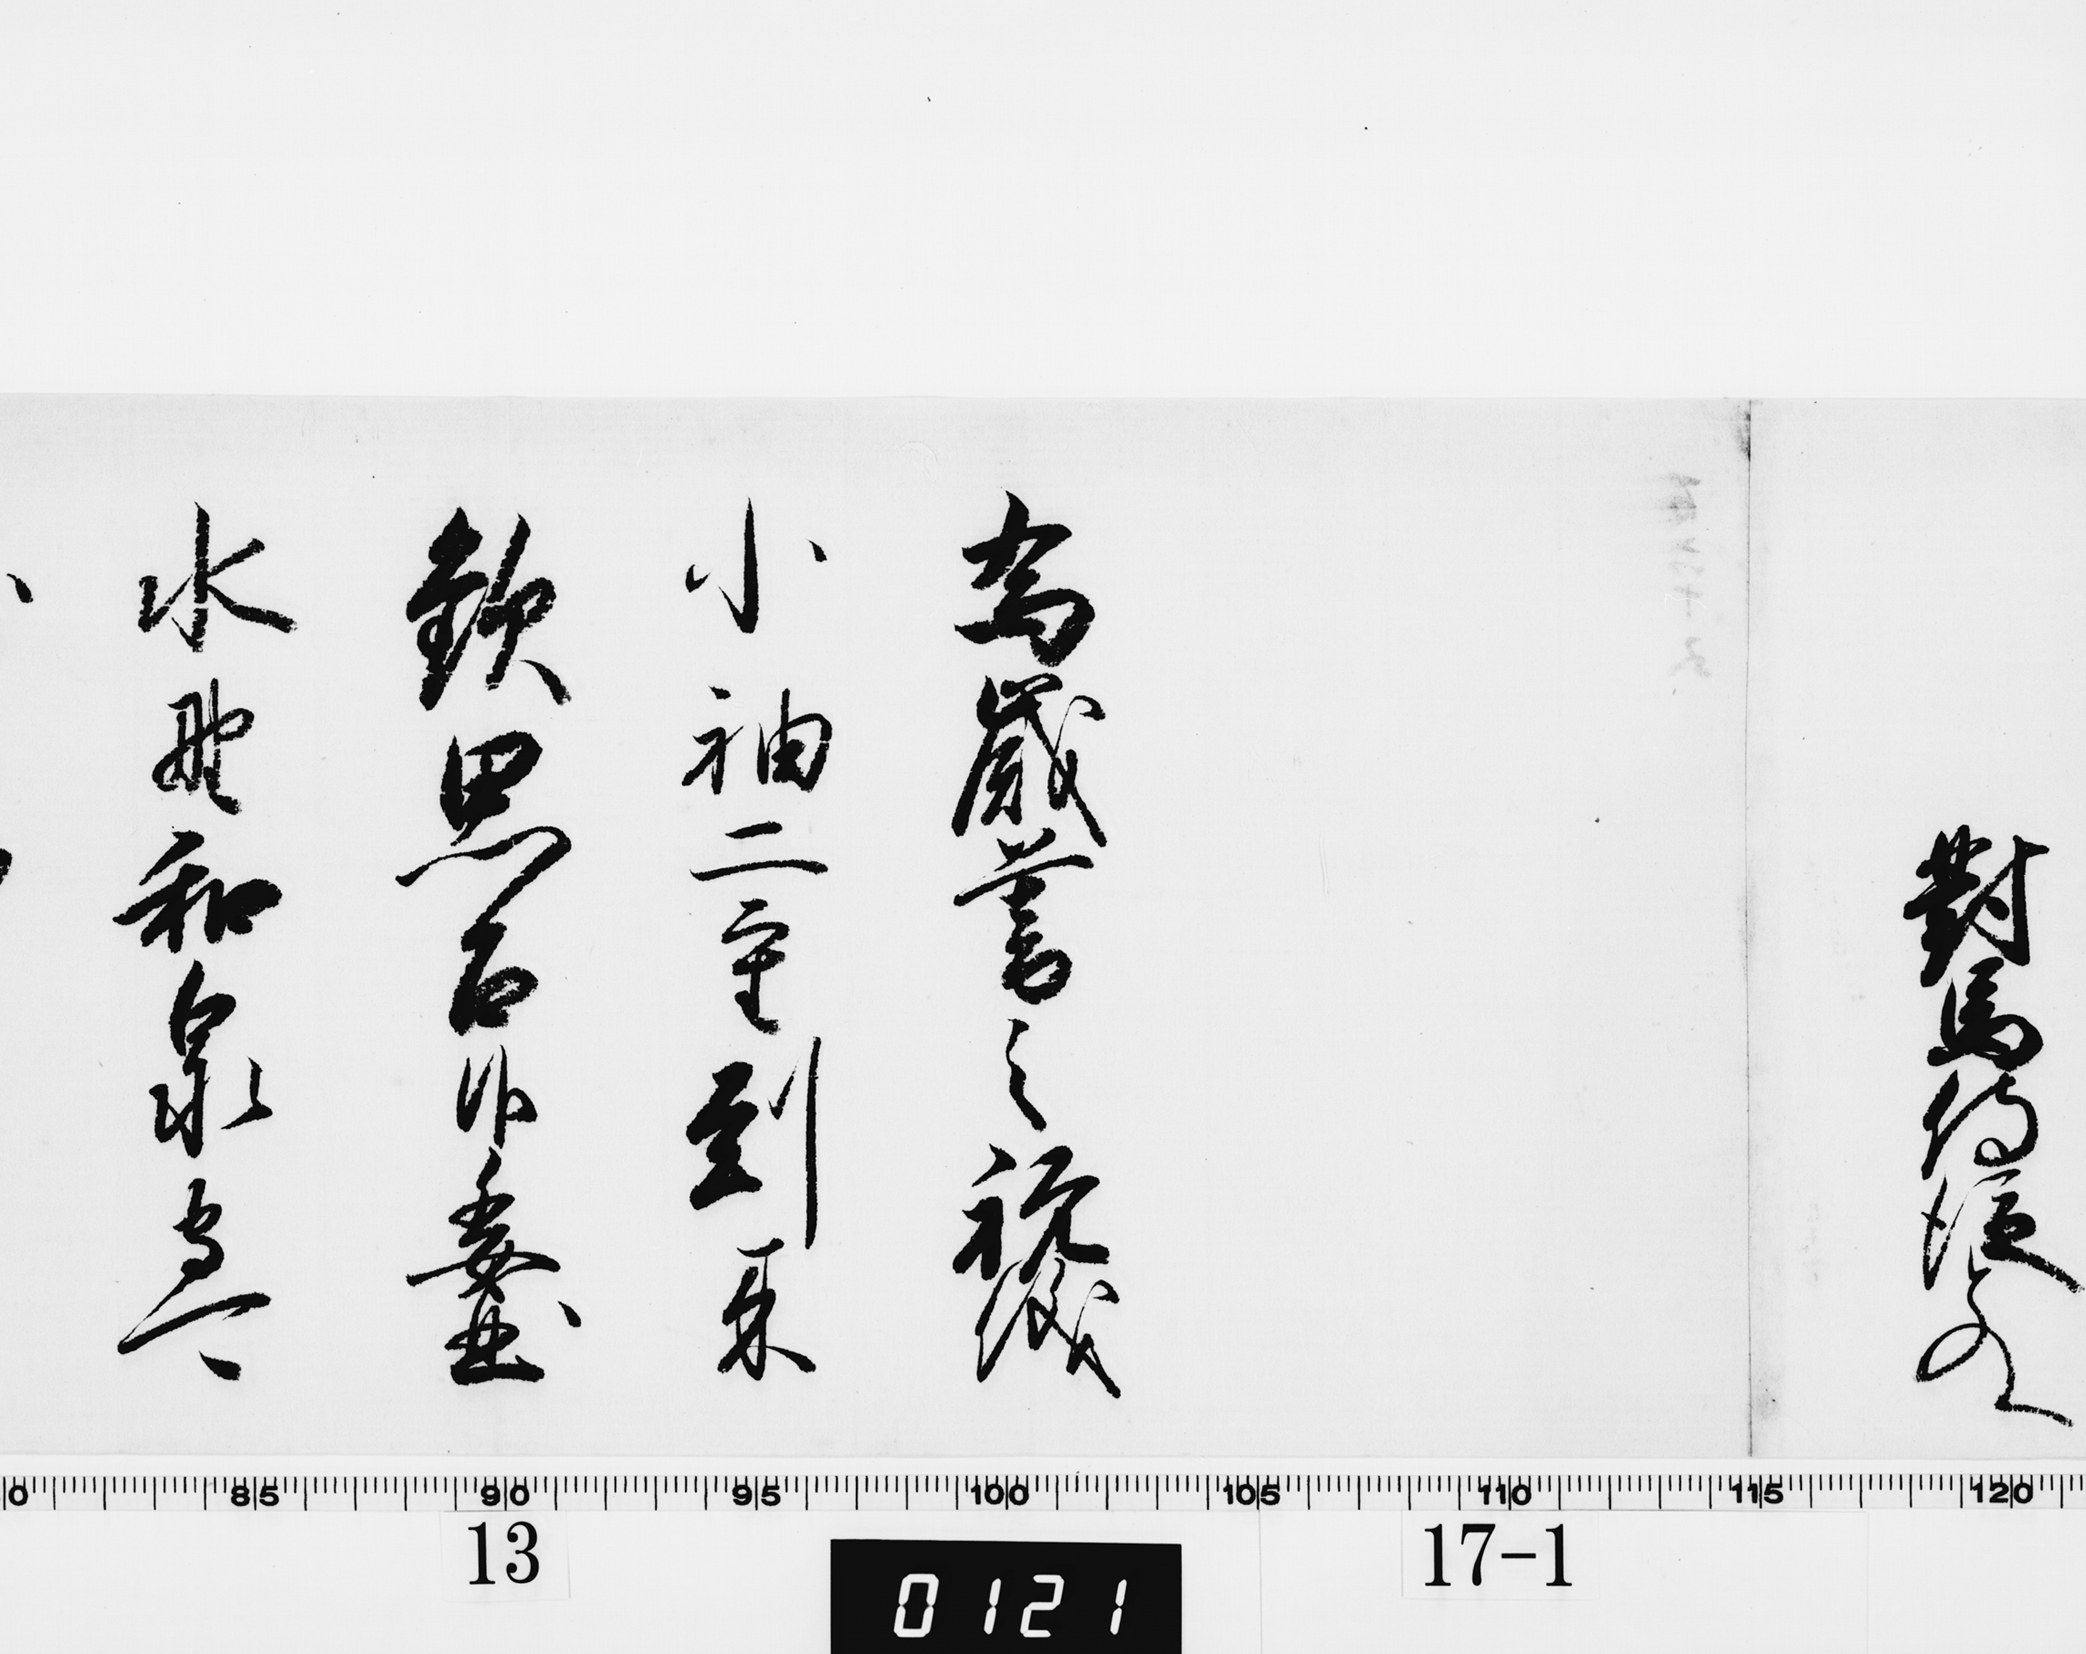 對馬侍従とのへ
為歳暮之祝儀
小袖二重到来
歓思召候委曲
水野和泉守可
85 90 95 100 105 110 115 120
13
17-1
0121